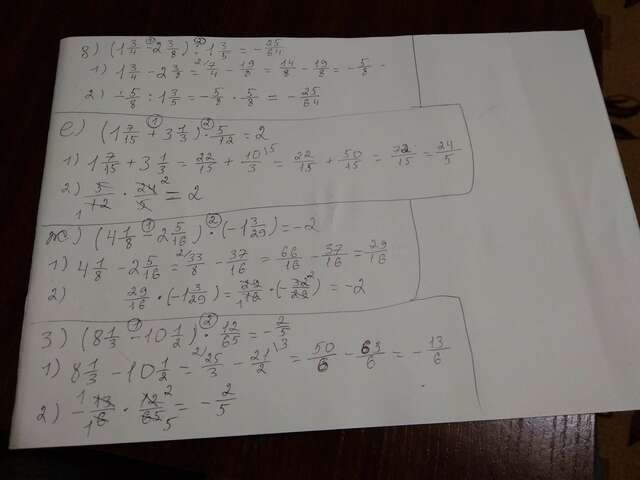 д) (1 3/4 - 2 3/8) : 1 3/5 = - 25/64
1) 1 3/4 - 2 3/8 = 7/4 - 19/8 = 14/8 - 19/8 = - 5/8
2) - 5/8 : 1 3/5 = - 5/8 · 5/8 = - 25/64
е) (1 7/15 + 3 1/3) · 5/12 = 2
1) 1 7/15 + 3 1/3 = 22/15 + 10/3 \5 = 22/15 + 50/15 = 72/15 = 24/5
2) 5/12 · 24/5 = 2
ж) (4 1/8 - 2 5/16) · (-1 3/29) = -2
1) 4 1/8 - 2 5/16 = 2/ 33/8 - 37/16 = 66/16 - 37/16 = 29/16
2) 29/16 · (-1 3/29) = 29/16 · (- 32/29) = -2
з) (8 1/3 - 10 1/2) · 12/65 = - 2/5
1) 8 1/3 - 10 1/2 = 2/ 25/3 - 21/2 \3 = 50/6 - 63/6 = - 13/6
2) - 13/6 · 12/65 = - 2/5